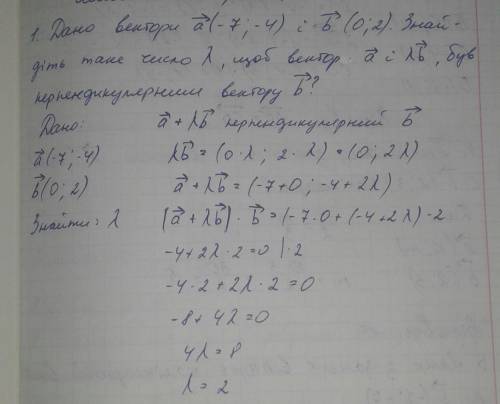 1. Дано вектори a⃗(-7;-4) і b⃗ (0;2). Знай-
діть таке число λ, щоб вектор a⃗ і λb⃗, був
перпендикулярним вектору b⃗?
Дано: a⃗ + λb⃗ перпендикулярний b⃗
a⃗(-7;-4) λb⃗ = (0·λ; 2·λ) = (0; 2λ)
b⃗(0; 2) a⃗ + λb⃗ = (-7+0; -4+2λ)
Знайти: λ [a⃗ + λb⃗]·b⃗ = (-7·0+(-4+2λ)·2
-4+2λ·2=0 |·2
-4·2+2λ·2=0
-8+4λ=0
4λ=8
λ=2